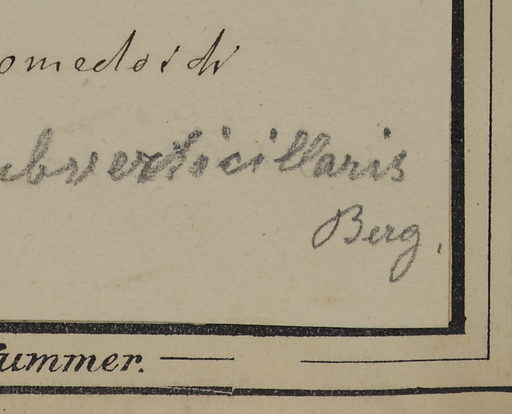 omedoidi
ubverticillaris
Berg.
ummer.